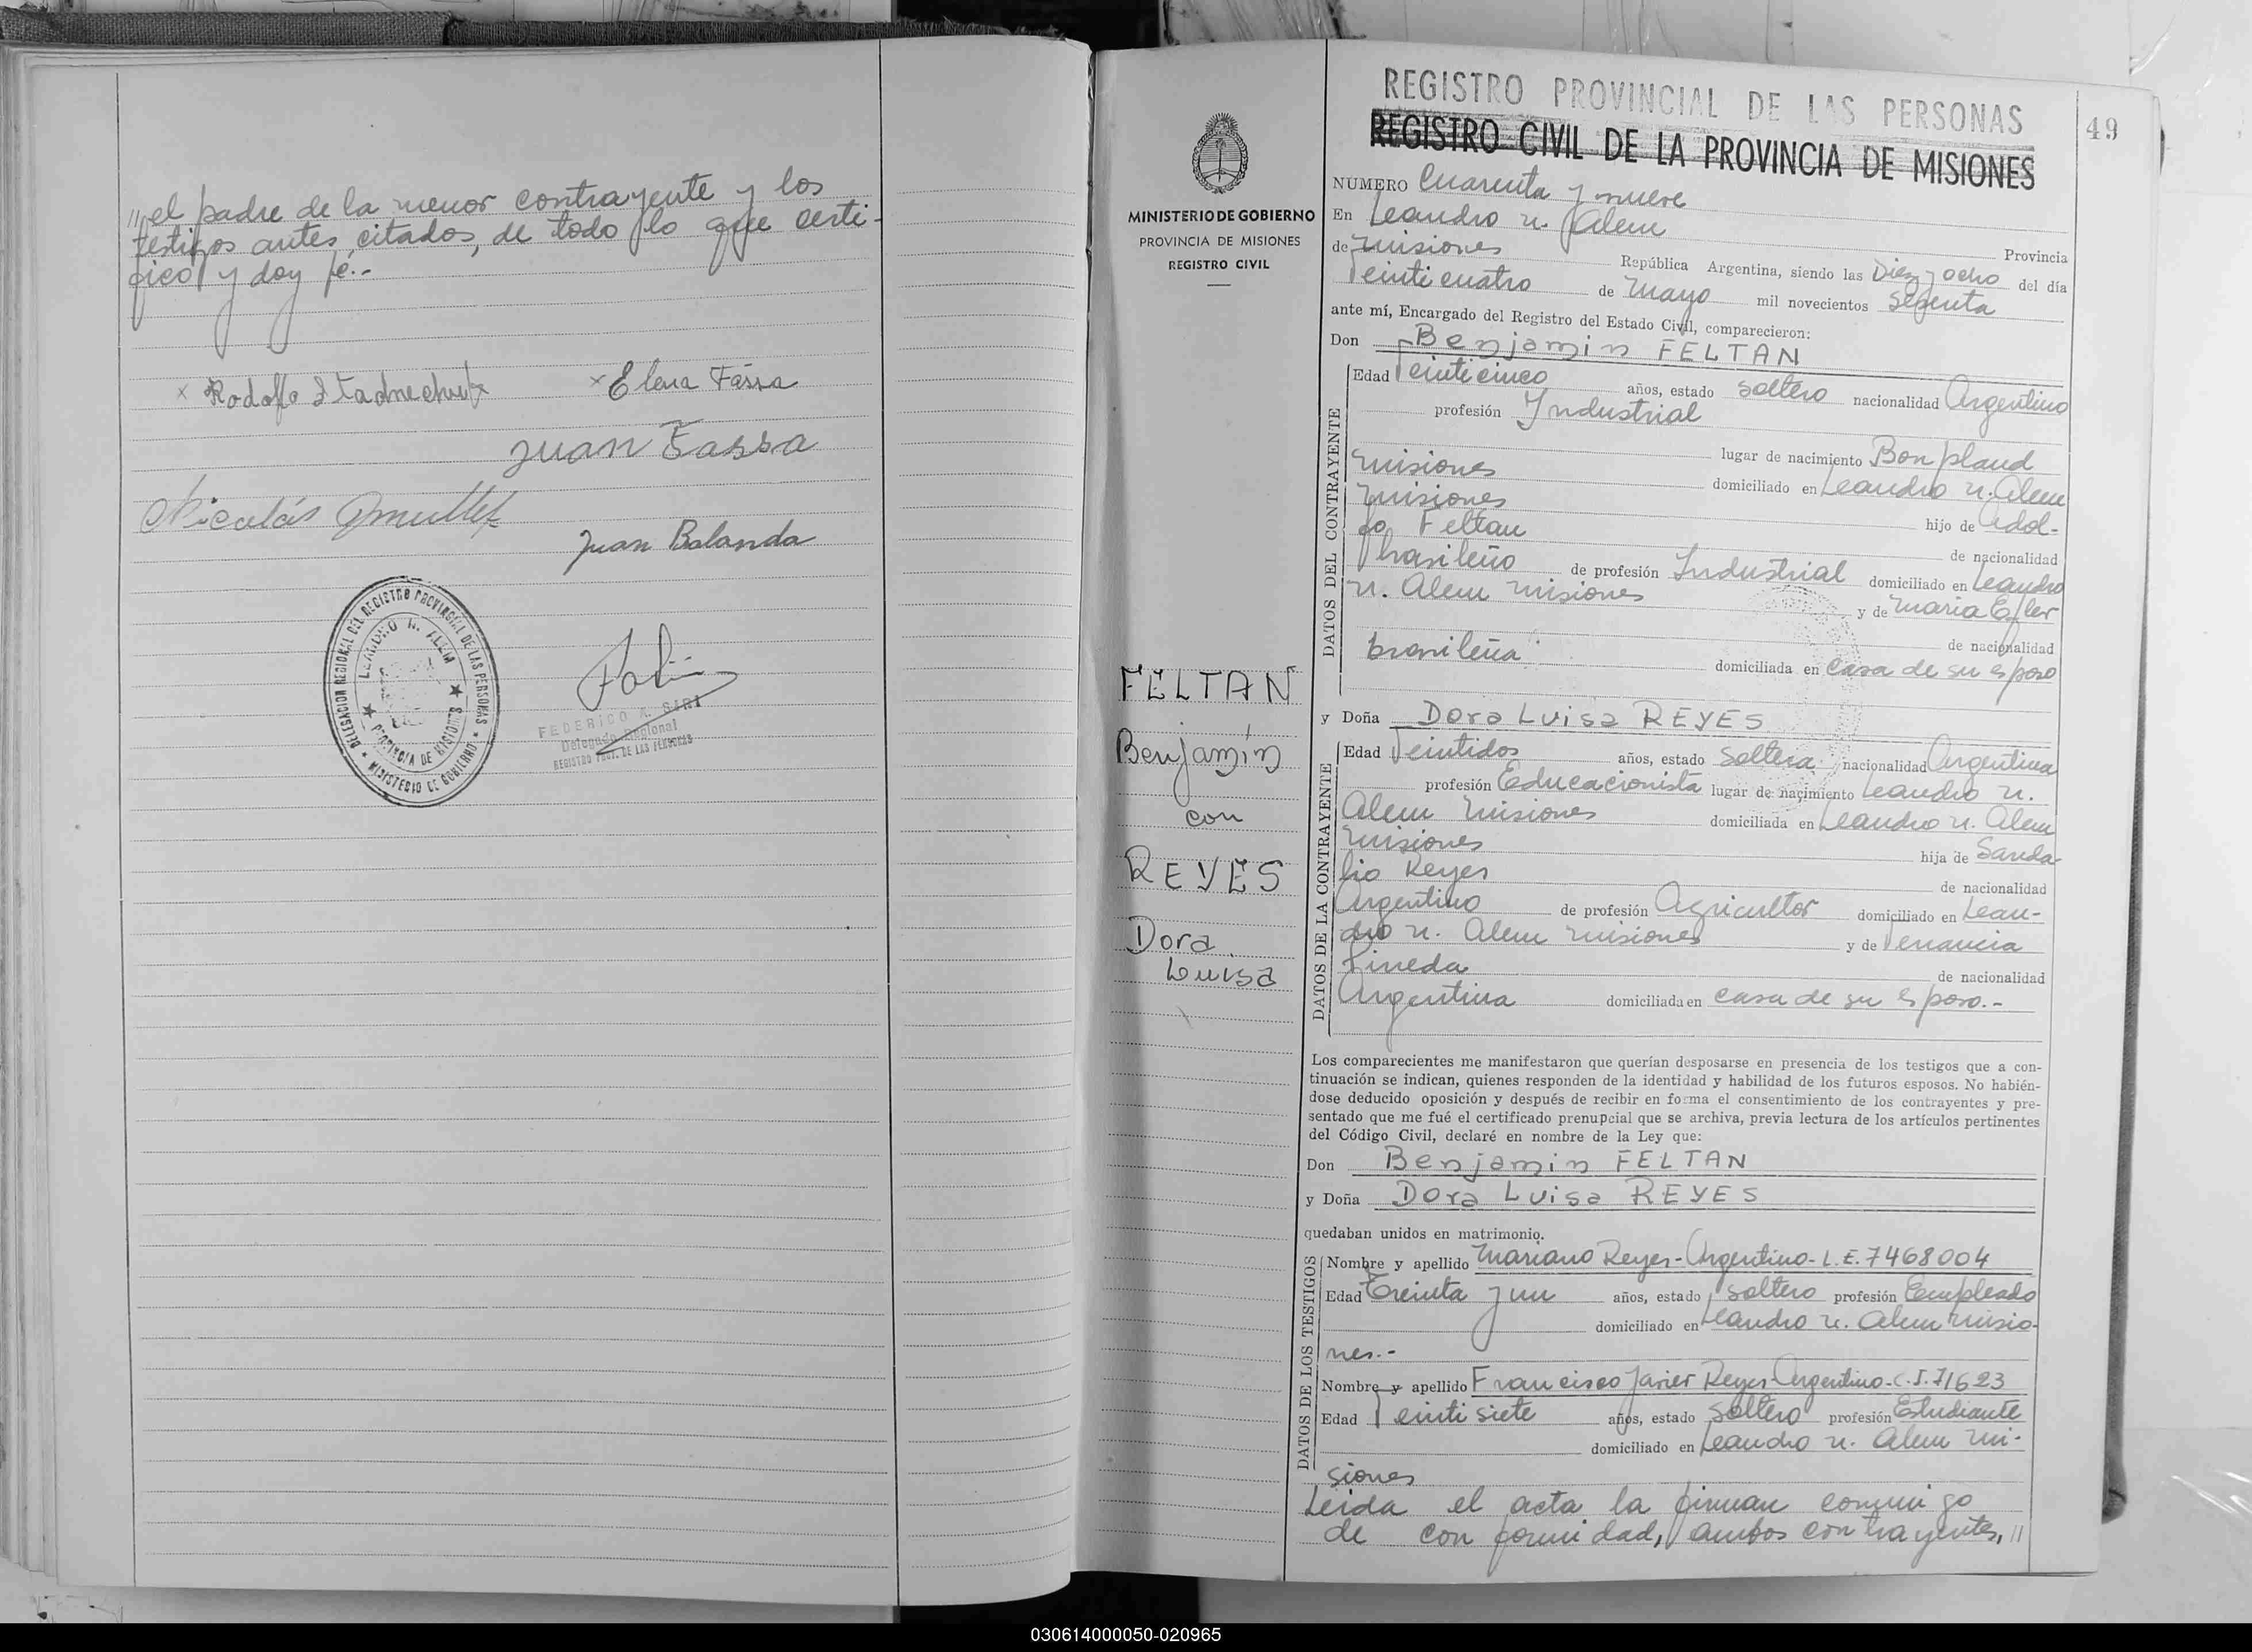 // el padre de la menor contrayente y los
testigos antes citados, de todo lo que certi-
fico y doy fé.-
x Rodolfo
x Elena Fassa
Juan Fassa
Nicolás
Juan Balanda
DELEGACION REGIONAL DEL REGISTRO PROVINCIAL DE LAS PERSONAS
MINISTERIO DE GOBIERNO
LEANDRO N. ALEM
PROVINCIA DE MISIONES
FEDERICO A. SARI
Delegado Regional
REGISTRO PROV. DE LAS PERSONAS
MINISTERIO DE GOBIERNO
PROVINCIA DE MISIONES
REGISTRO CIVIL
FELTAN
Benjamín
con
REYES
Dora
Luisa
REGISTRO PROVINCIAL DE LAS PERSONAS
REGISTRO CIVIL DE LA PROVINCIA DE MISIONES
49
NUMERO Cuarenta y nueve
En Leandro N. Alem
de Misiones Provincia
República Argentina, siendo las Diez y ocho del día
Veinticuatro de Mayo mil novecientos setenta
ante mí, Encargado del Registro del Estado Civil, comparecieron:
Don Benjamin FELTAN
DATOS DEL CONTRAYENTE
Edad Veinticinco años, estado soltero nacionalidad Argentino
profesión Industrial
lugar de nacimiento Bonpland
Misiones domiciliado en Leandro N. Alem
Misiones hijo de Adol-
fo Feltan de nacionalidad
brasileño de profesión Industrial domiciliado en Leandro
N. Alem Misiones y de Maria
de nacionalidad
brasileña domiciliada en casa de su esposo
y Doña Dora Luisa REYES
DATOS DE LA CONTRAYENTE
Edad Veintidos años, estado soltera nacionalidad Argentina
profesión Educacionista lugar de nacimiento Leandro N.
Alem Misiones domiciliada en Leandro N. Alem
Misiones hija de Sanda-
lio Reyes de nacionalidad
Argentino de profesión Agricultor domiciliado en Lean-
dro N. Alem Misiones y de Venancia
Pineda de nacionalidad
Argentina domiciliada en casa de su esposo.-
Los comparecientes me manifestaron que querían desposarse en presencia de los testigos que a con-
tinuación se indican, quienes responden de la identidad y habilidad de los futuros esposos. No habién-
dose deducido oposición y después de recibir en forma el consentimiento de los contrayentes y pre-
sentado que me fué el certificado prenupcial que se archiva, previa lectura de los artículos pertinentes
del Código Civil, declaré en nombre de la Ley que:
Don Benjamin FELTAN
y Doña Dora Luisa REYES
quedaban unidos en matrimonio.
DATOS DE LOS TESTIGOS
Nombre y apellido Mariano Reyes-Argentino-L.E.7468004
Edad Treinta y un años, estado soltero profesión Empleado
domiciliado en Leandro N. Alem Misio-
nes.-
Nombre y apellido Francisco Javier Reyes-Argentino-C.I.71623
Edad Veintisiete años, estado soltero profesión Estudiante
domiciliado en Leandro N. Alem Mi-
siones
Leida el acta la firman conmigo
de conformidad, ambos contrayentes, //
030614000050-020965